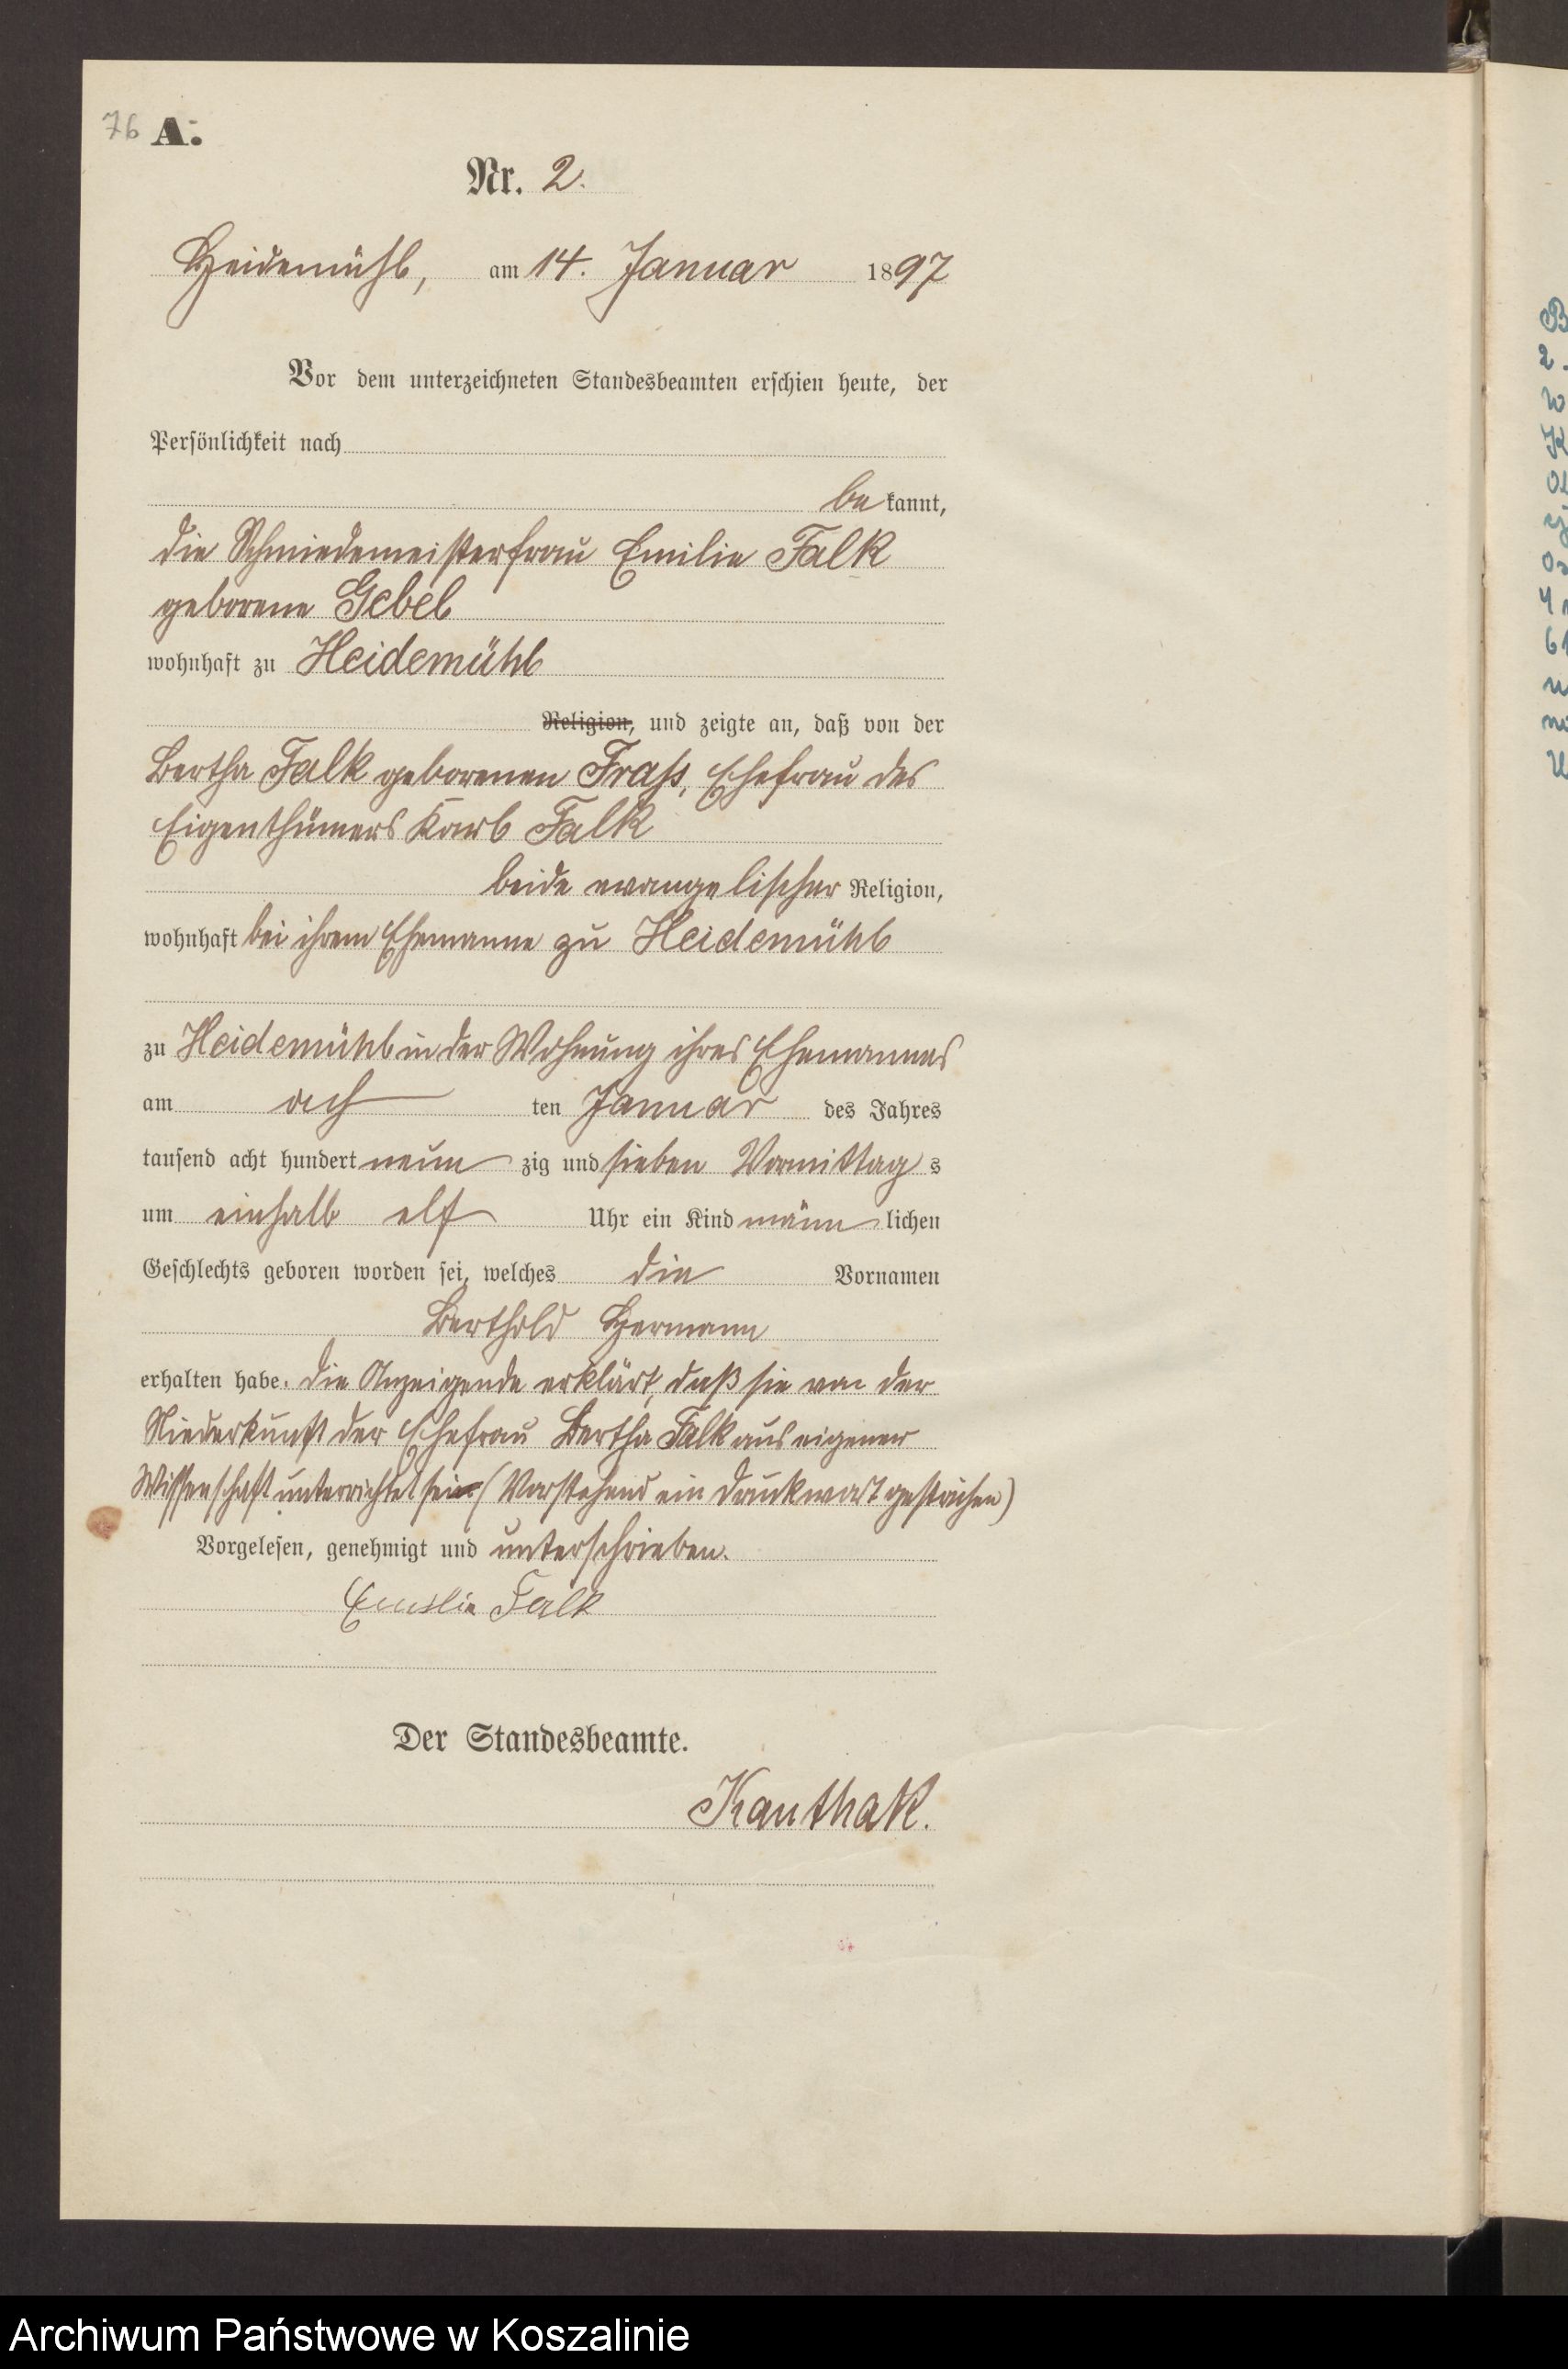 76 A.
Nr. 2.
Heidemühl, am 14. Januar 1897
Vor dem unterzeichneten Standesbeamten erschien heute, der
Persönlichkeit nach
be kannt,
die Schmiedemeisterfrau Emilie Falk
geborene Gebel
wohnhaft zu Heidemühl
Religion, und zeigte an, daß von der
Bertha Falk geborenen Frass, Ehefrau des
Eigenthümers Karl Falk
beide evangelischer Religion,
wohnhaft bei ihrem Ehemanne zu Heidemühl
zu Heidemühl in der Wohnung ihres Ehemannes
am acht ten Januar des Jahres
tausend acht hundert neun zig und sieben Vormittag s
um einhalb elf Uhr ein Kind männ lichen
Geschlechts geboren worden sei, welches die Vornamen
Berthold Hermann
erhalten habe. die Anzeigende erklärt, daß sie von der
Niederkunft der Ehefrau Bertha Falk aus eigener
Wissenschaft unterrichtet sei (Vorstehend ein Druckwort gestrichen)
Vorgelesen, genehmigt und unterschrieben.
Emilie Falk
Der Standesbeamte.
Kauthak.
Archiwum Państwowe w Koszalinie